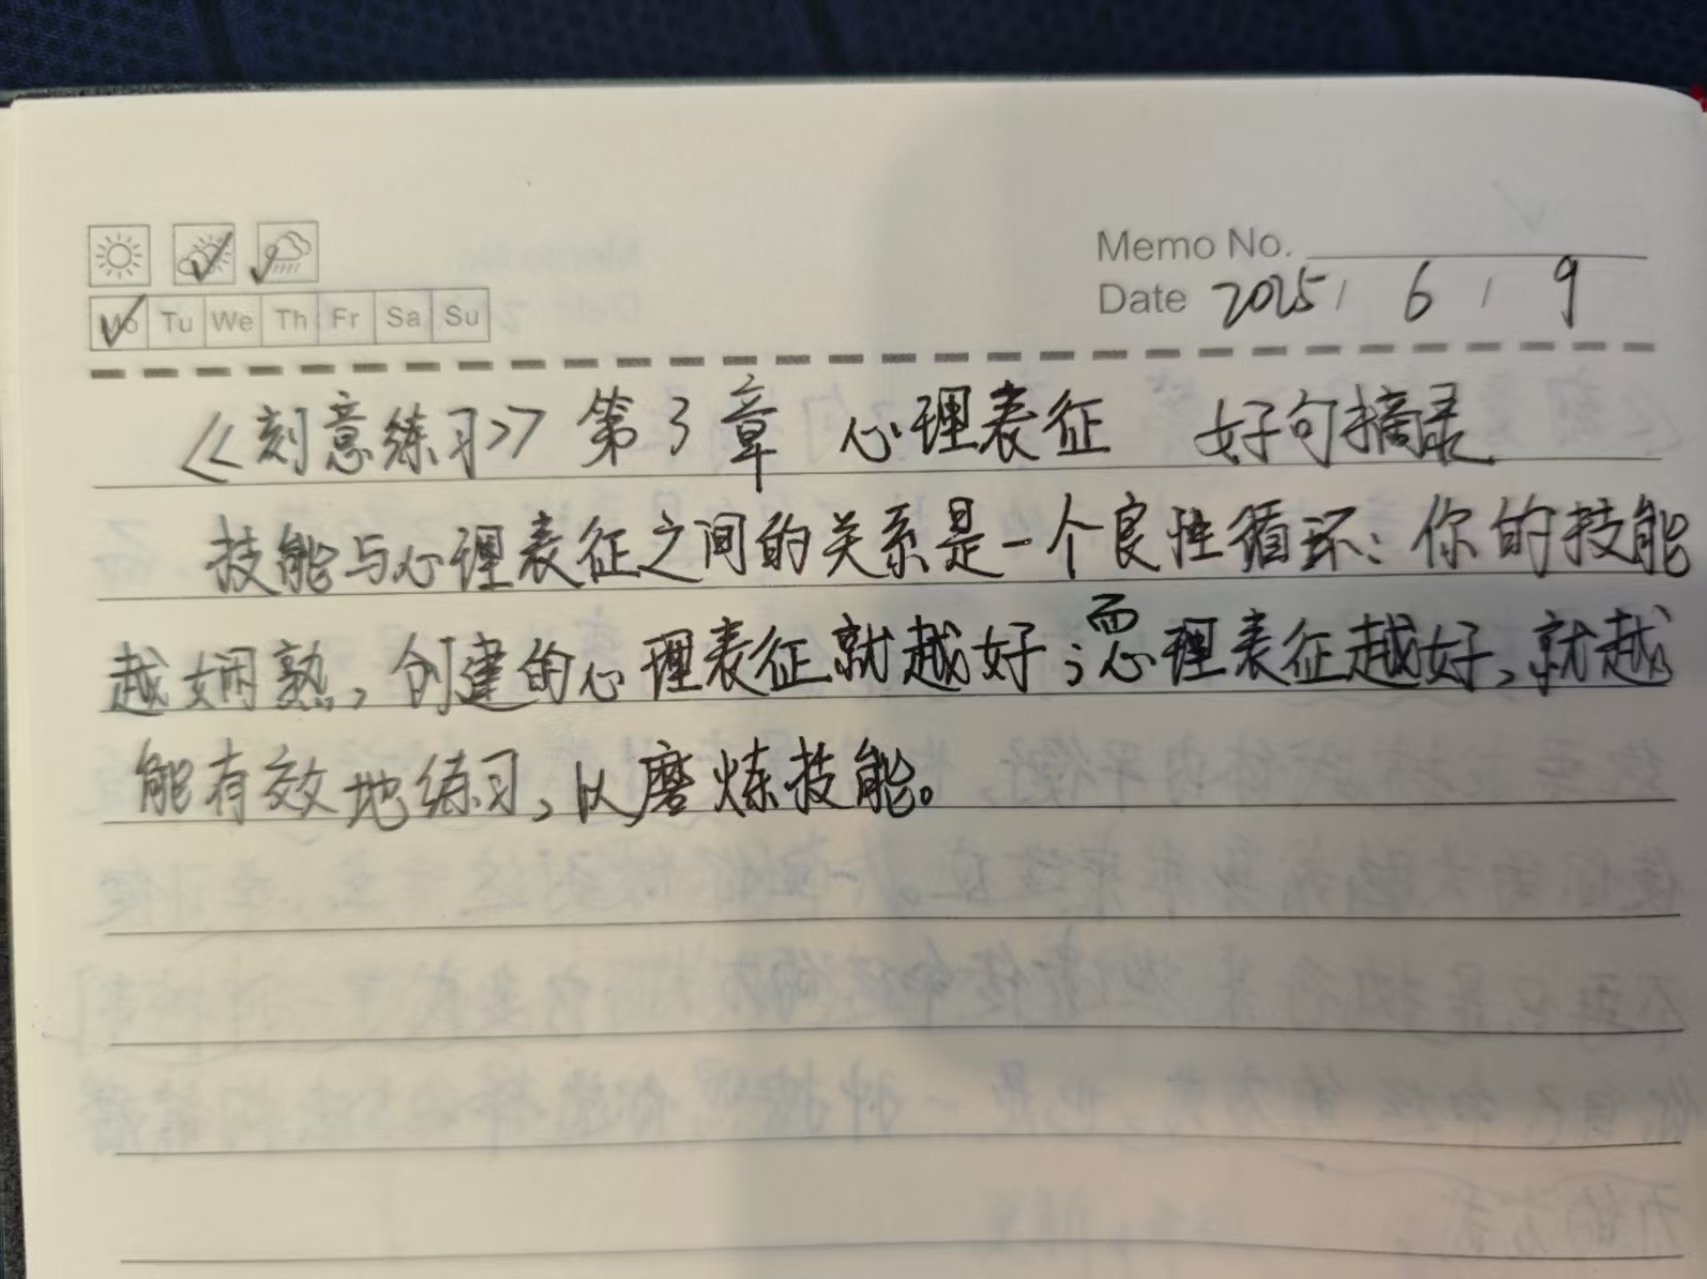 Memo No.
Mo Tu We Th Fr Sa Su
Date 2025 / 6 / 9
《刻意练习》 第3章 心理表征 好句摘录
技能与心理表征之间的关系是一个良性循环：你的技能
越娴熟，创建的心理表征就越好；而心理表征越好，就越
能有效地练习，以磨炼技能。